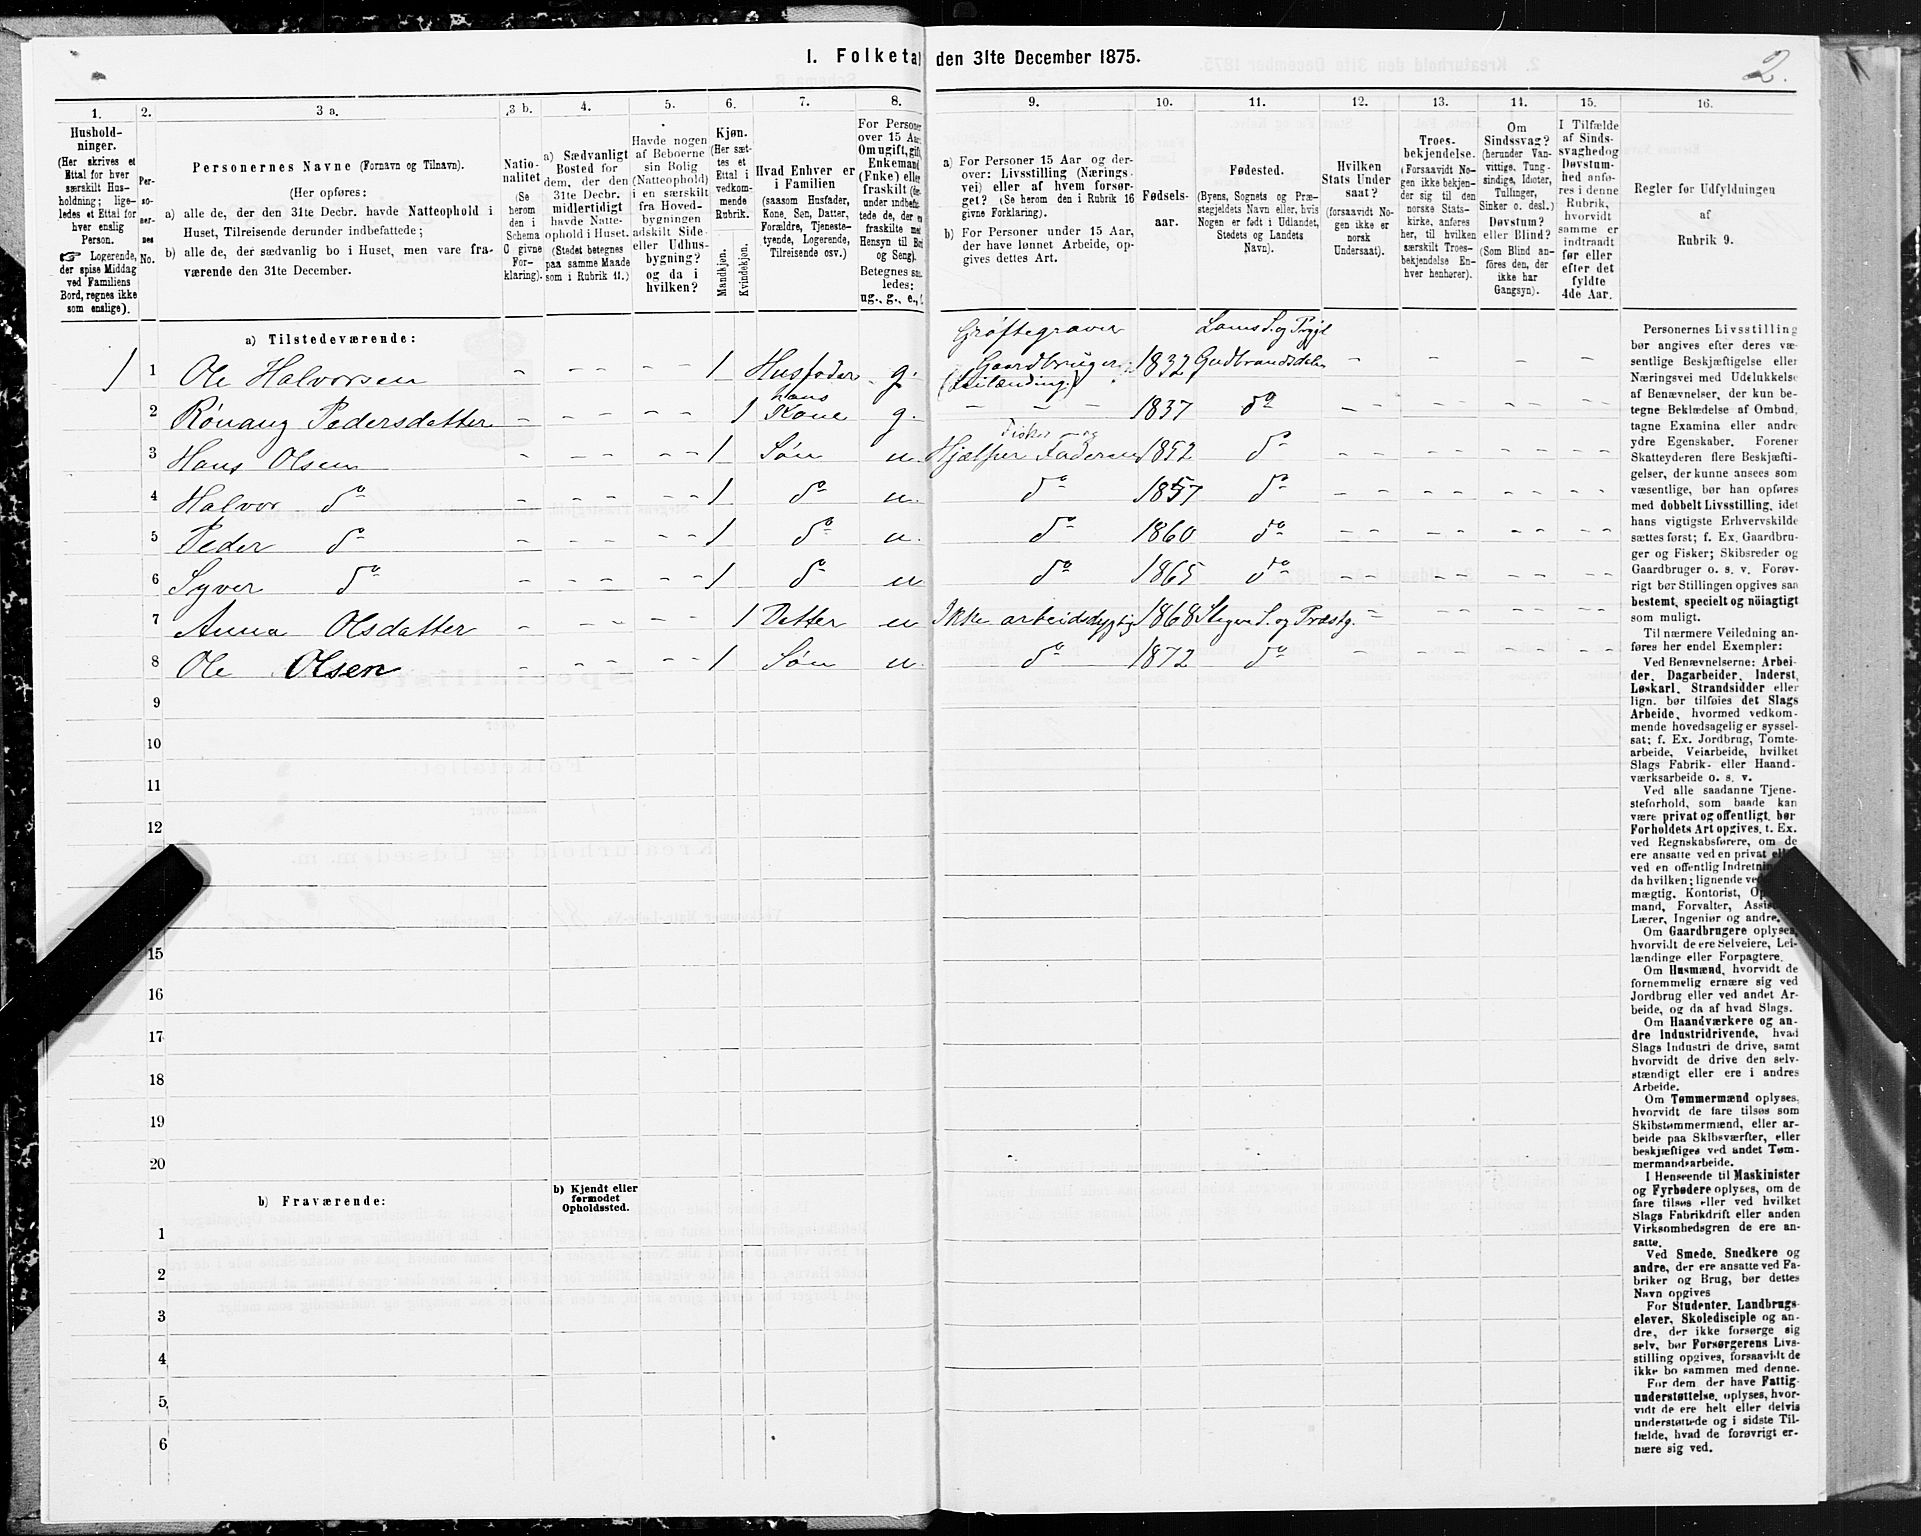 1. Folketal den 31te December 1875.
2.
1.
Hushold-
ninger.
(Her skrives et
Ettal for hver
særskilt Hus-
holdning; lige-
ledes et Ettal for
hver enslig
Person.
☞ Logerende,
der spise Middag
ved Familiens
Bord, regnes ikke
som enslige).
2.
Per-
so-
ner-
nes
No.
3 a.
Personernes Navne (Fornavn og Tilnavn).
(Her opføres:
a) alle de, der den 31te Decbr. havde Natteophold i
Huset, Tilreisende derunder indbefattede;
b) alle de, der sædvanlig bo i Huset, men vare fra-
værende den 31te December.
3 b.
Natio-
nalitet
(Se
herom
den i
Schema
O givne
For-
klaring).
4.
a) Sædvanligt
Bosted for
dem, der den
31te Decbr.
midlertidigt
havde Natte-
ophold i Huset.
(Stedet betegnes
paa samme Maade
som i Rubrik 11.)
5.
Havde nogen
af Beboerne
sin Bolig
(Natteophold)
i en særskilt
fra Hoved-
bygningen
adskilt Side-
eller Udhus-
bygning?
og da i
hvilken?
6.
Kjøn.
(Her sæt-
tes et
Ettal i
vedkom-
mende
Rubrik.
Mandkjøn.
Kvindekjøn.
7.
Hvad Enhver er
i Familien
(saasom Husfader,
Kone, Søn, Datter,
Forældre, Tjeneste-
tyende, Logerende,
Tilreisende osv.)
8.
For Personer
over 15 Aar:
Om ugift, gift,
Enkemand
(Enke) eller
fraskilt
Betegnes saa-
ledes:
ug., g., e., f.
9.
a) For Personer 15 Aar og der-
over: Livsstilling (Nærings-
vei) eller af hvem forsør-
get? (Se herom den i Rubrik 16
givne Forklaring).
b) For Personer under 15 Aar,
der have lønnet Arbeide, op-
gives dettes Art.
10.
Fødsels-
aar.
11.
Fødested.
(Byens, Sognets og Præ-
stegjeldets Navn eller, hvis
Nogen er født i Udlandet,
Stedets og Landets
Navn).
12.
Hvilken
Stats Under
saat?
(forsaavidt No-
gen ikke er
norsk
Undersaat).
13.
Troes-
bekjendelse.
(Forsaavidt No-
gen ikke bekjen-
der sig til den
norske Stats-
kirke, anføres
her, til hvilken
særskilt Troes-
bekjendelse En-
hver henhører).
14.
Om
Sindssvag?
(herunder Van-
vittige, Tung-
sindige, Idioter,
Tullinger,
Sinker o. desl.)
Døvstum?
eller Blind?
(Som Blind an-
føres den, der
ikke har
Gangsyn).
15.
I Tilfælde
af Sinds-
svaghed og
Døvstum-
hed anfø-
res i denne
Rubrik,
hvorvidt
samme er
indtraadt
før eller
efter det
fyldte
4de Aar.
16.
Regler for Udfyldningen
af
Rubrik 9.
a) Tilstedeværende:
1 1 Ole Halvorsen - - - - - - 1 Husfader g. Grøftegraver Gaardbruger (Leilænding) 1832 Loms S. og Prgjl Gudbrandsdalen
2 Rönaug Pedersdatter 1 hans Kone g. - - - 1837 do
3 Hans Olsen 1 Søn u. Fisker og Hjælper Faderen 1852 do
4 Halvor do 1 do u. do 1857 do
5 Peder do 1 do u. do 1860 do
6 Syver do 1 do u do 1865 do
7 Anna Olsdatter 1 Datter u Ikke arbeidsdygtig 1868 Stegen S. og Præstg.
8 Ole Olsen 1 Søn u. do 1872 do
9
10
11
12
15
16
17
18
19
20
b) Fraværende:
b) Kjendt eller
formodet
Opholdssted.
1
2
3
4
5
6
Personernes Livsstilling
bør angives efter deres væ-
sentlige Beskjæftigelse eller
Næringsvei med Udelukkelse
af Benævnelser, der kun be-
tegne Beklædelse af Ombud,
tagne Examina eller andre
ydre Egenskaber. Forener
Skatteyderen flere Beskjæfti-
gelser, der kunne ansees som
væsentlige, bør han opføres
med dobbelt Livsstilling, idet
hans vigtigste Erhvervskilde
sættes først; f. Ex. Gaardbru-
ger og Fisker; Skibsreder og
Gaardbruger o. s. v. Forøv-
rigt bør Stillingen opgives saa
bestemt, specielt og nöiagtigt
som muligt.
Til nærmere Veiledning an-
føres her endel Exempler:
Ved Benævnelserne: Arbei-
der, Dagarbeider, Inderst,
Løskarl, Strandsidder eller
lign. bør tilføies det Slags
Arbeide, hvormed vedkom-
mende hovedsagelig er syssel-
sat; f. Ex. Jordbrug, Tomte-
arbeide, Veiarbeide, hvilket
Slags Fabrik- eller Haand-
værksarbeide o. s. v.
Ved alle saadanne Tjene-
steforhold, som baade kan
være privat og offentligt, bør
Forholdets Art opgives, t. Ex.
ved Regnskabsførere, om de
ere ansatte ved en privat eller
ved en offentlig Indretning
da hvilken; lignende ved
mægtig, Kontorist,
mand, Forvalter,
Lærer, Ingeniør og andre.
Om Gaardbrugere oplyses,
hvorvidt de ere Selveiere, Lei-
lændinge eller Forpagtere.
Om Husmænd, hvorvidt de
fornemmelig ernære sig ved
Jordbrug eller ved andet Ar-
beide, og da af hvad Slags.
Om Haandværkere og an-
dre Industridrivende, hvad
Slags Industri de drive, samt
hvorvidt de drive den selv-
stændigt eller ere i andres
Arbeide.
Om Tømmermænd oplyses,
hvorvidt de fare tilsøs som
Skibstømmermænd, eller ar-
beide paa Skibsværfter, eller
beskjæftiges ved andet Tøm-
mermandsarbeide.
I Henseende til Maskinister
og Fyrbødere oplyses, om de
fare tilsøs eller ved hvilket
Slags Fabrikdrift eller anden
Virksomhedsgren de ere an-
satte.
Ved Smede, Snedkere og
andre, der ere ansatte ved Fa-
briker og Brug, bør dettes
Navn opgives
For Studenter, Landbrugs-
elever, Skoledisciple og an-
dre, der ikke forsørge sig
selv, bør Forsørgerens Livs-
stilling opgives, forsaavidt de
ikke bo sammen med denne.
For dem, der have Fattig-
understøttelse, oplyses, hvor-
vidt de ere helt eller delvis
understøttede og i sidste Til-
fælde, hvad de forøvrigt er-
nære sig ved.